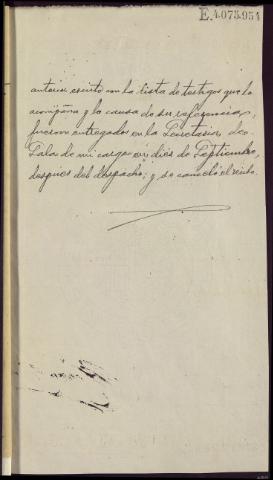 E.4.075.951
anterior escrito con la lista de testigos que lo
acompaña y la causa de su referencia,
fueron entregados en la Secretaria de
Sala de mi cargo en dies de Septiembre,
despues del despacho; y se canceló el